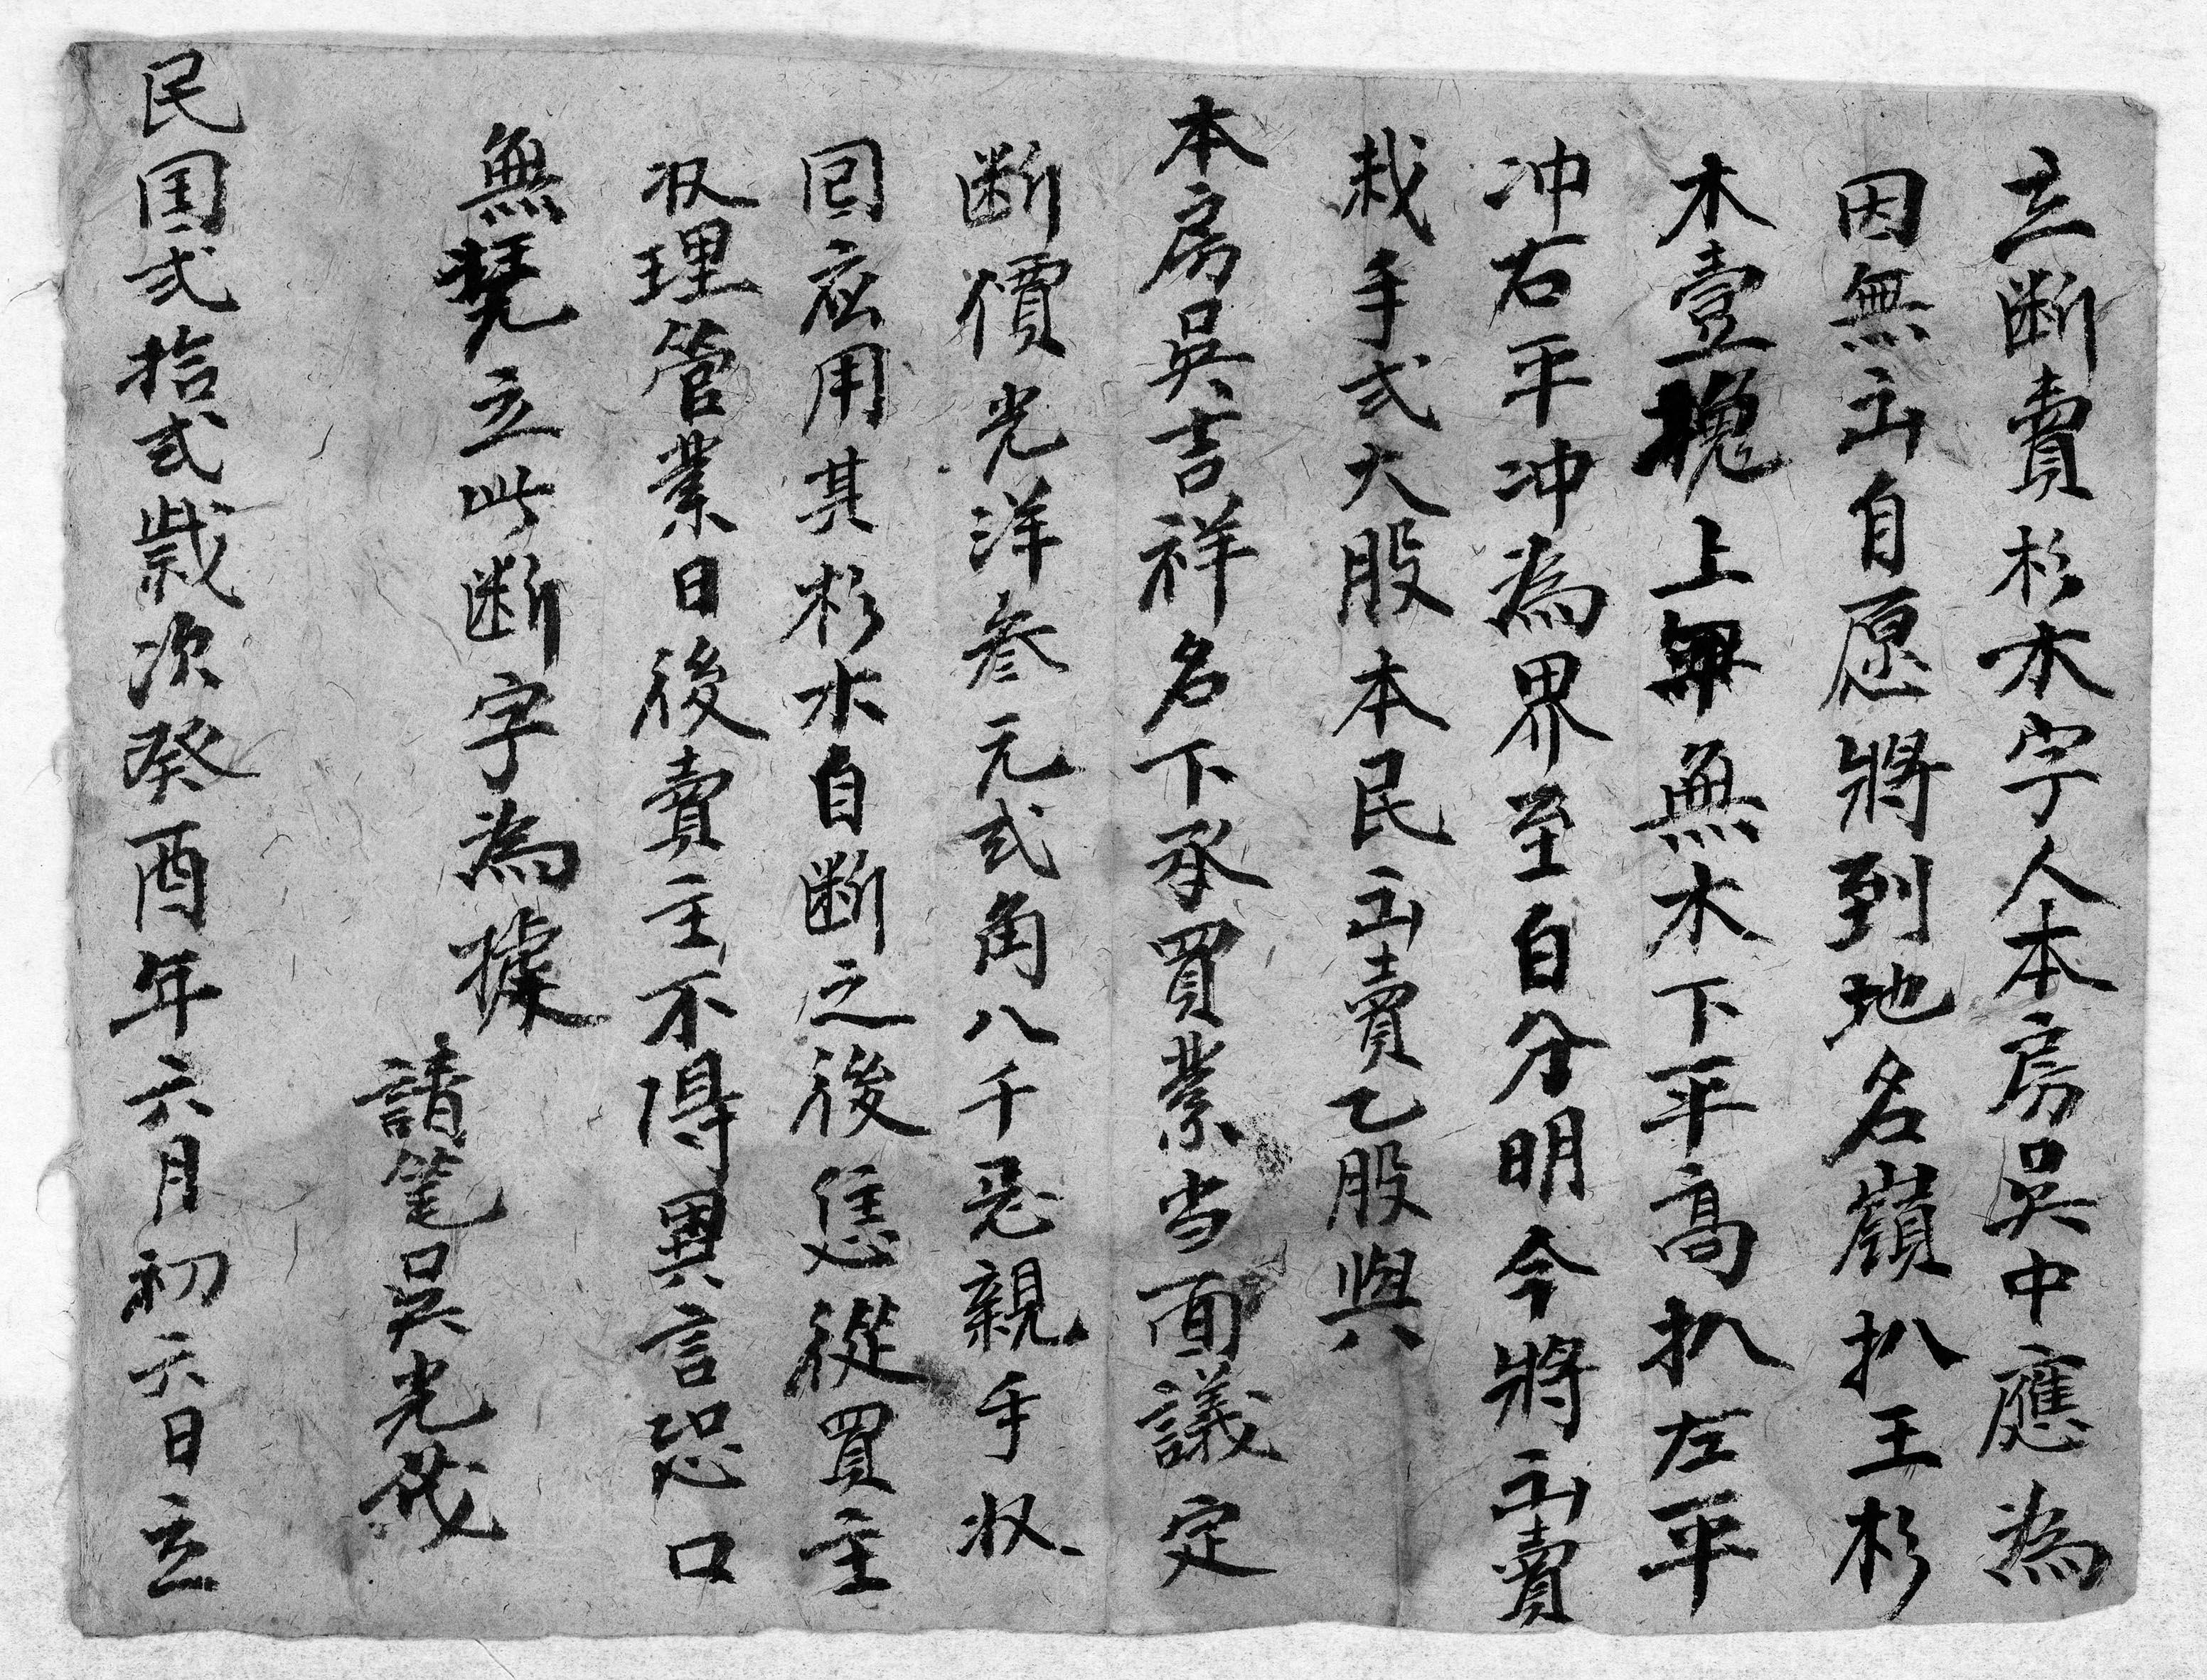 立断賣杉木字人本房吳中應為
因無𫝀自愿將到地名嶺扒王杉
木壹塊上無木下平高扒左平
冲右平冲為界至自分明今將𫝀賣
栽手弍大股本民𫝀賣乙股與
本房吳吉祥名下承買業当面議定
断價光洋叁元弍角八千已親手収
囘应用其杉木自断之後恁從買主
収理管業日後賣主不得異言恐口
無凭立此断字為據
請笔吳光茂
民国弍拾弍嵗次癸酉年六月初六日立